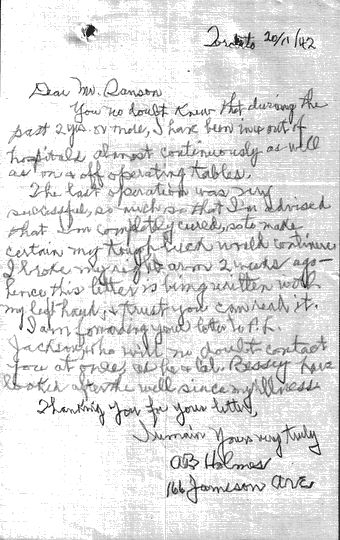 Toronto 20/11/42
Dear Mr. Danson
You no doubt knew that during the
past 2 yrs. or more, I have been in & out of
hospitals almost continuously as well
as on & off operating tables.
The last operation was very
successful, so much so that I'm advised
that I'm completely cured, so to make
certain my tough luck would continue
I broke my right arm 2 weeks ago —
hence this letter is being written with
my left hand, & trust you can read it.
I am forwarding your letter to P.L.
Jackson who will no doubt contact
you at once, as he & Bessey have
looked after the well since my illness
Thanking you for your letter,
I remain Yours very truly
AB Holmes
166 Jameson Ave